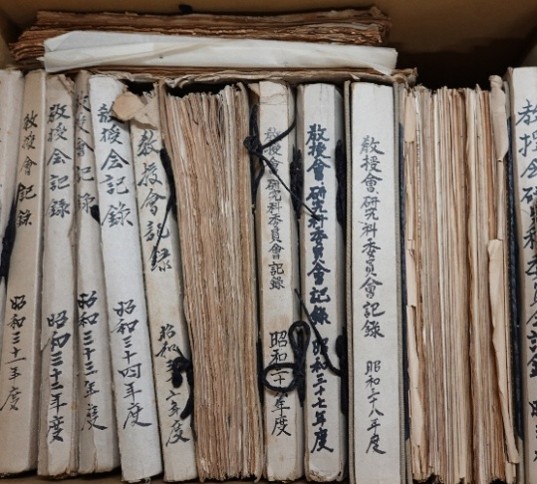 教授會記録 昭和三十一年度
教授会記録 昭和三十二年度
教授会記録 昭和三十三年度
教授会記録 昭和三十四年度
教授會記録 昭和 六年度
教授會研究科委員會記録 昭和 年度
教授會研究科委員會記録 昭和三十七年度
教授會研究科委員會記録 昭和三八年度
教授会研究科委員会記録